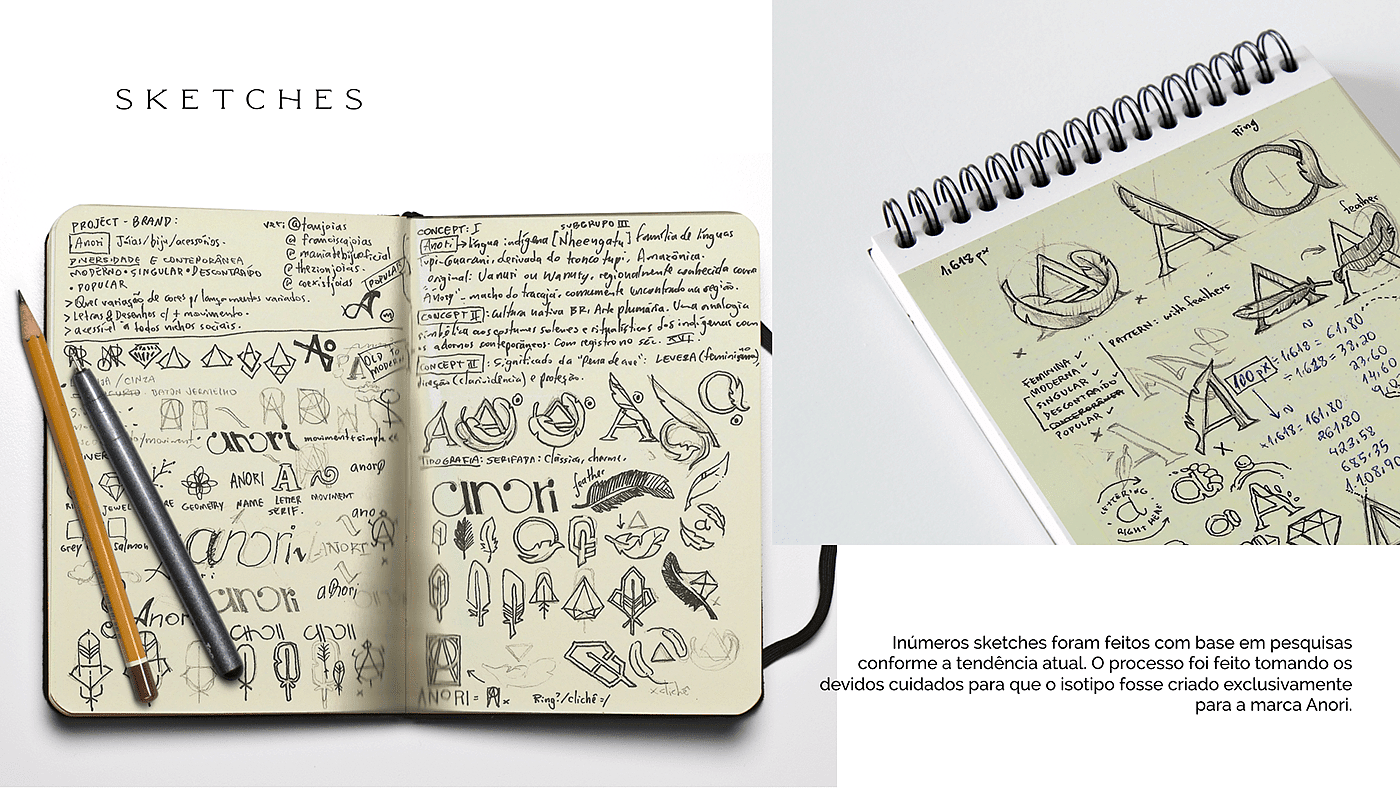 SKETCHES
PROJECT - BRAND:
Anori Jóias/biju/acessórios.
DIVERSIDADE E CONTEPORÂNEA
MODERNO • SINGULAR • DESCONTRAÍDO
• POPULAR
> Quer variação de cores p/ lançamentos variados.
> Letras & Desenhos c/ + movimento.
> acessível a todos nichos sociais.
@taujoias
@franciscajoias
@maniatebijuoficial
@thezionjoias.
@coexistjoias
POPULAR
OLD TO
MODERN
/CINZA
BATOM VERMELHO
anori
movimento + simple
anori
ANORI
GEOMETRY NAME LETTER MOVIMENT
SERIF.
Grey
salmon
anori
ANORI
anori
anori
Anori
CONCEPT: I
SUBGRUPO III
Anori → língua indígena [Nheengatu] família de línguas
Tupi-Guarani, derivada do tronco tupi. Amazônica.
original: Uanuri ou Wanury, regionalmente conhecida como
Anory - macho do tracajá, comumente encontrado na região.
CONCEPT II: Cultura nativa BR; Arte plumária. Uma analogia
simbólica aos costumes solenes e ritualísticos dos indígenas com
os adornos contemporâneos. Com registro no séc. XVI.
CONCEPT III: Significado da "Pena de ave": LEVEZA (feminismo)
direção (clarividência) e proteção.
TIPOGRAFIA: SERIFADA: Clássica, charme.
anori
feather
x clichê
ANORI =
Ring?/clichê :/
Ring
1.618 px
feather
PATTERN: with feathers
FEMININA ✓
MODERNA ✓
SINGULAR ✓
DESCONTRAÍDO ✓
CONTEPORÂNEA
POPULAR ✓
100 px
N
÷ 1.618 = 61,80
÷ 1.618 = 38,20
23,60
14,60
N
x 1.618 = 161.80
261.80
423.58
685.35
1.108.90
LETTERING
a
RIGHT HERE
Inúmeros sketches foram feitos com base em pesquisas
conforme a tendência atual. O processo foi feito tomando os
devidos cuidados para que o isotipo fosse criado exclusivamente
para a marca Anori.